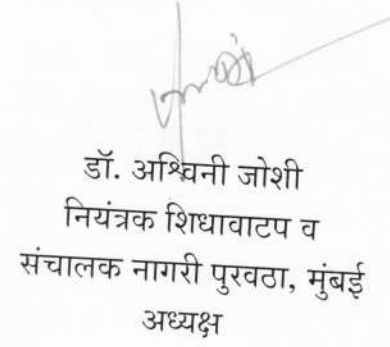 डॉ. अश्विनी जोशी
नियंत्रक शिधावाटप व
संचालक नागरी पुरवठा, मुंबई
अध्यक्ष